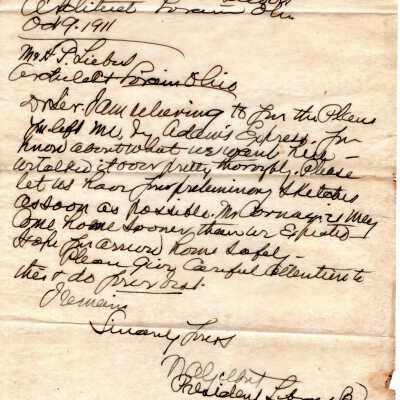 Architect Lorain Ohio
Oct 9. 1911
Mr H. P. Liebus
Architect Lorain Ohio
Dr Sir. I am returning to you the Plans
you left me, by Adams Express. You
know about what we want here —
we talked it over pretty thoroughly. Please
let us have your preliminary Sketches
as soon as possible. Mr may
come home sooner than we Expected
Hope you arrived home safely —
Please give Careful Attention to
this & do your best.
I Remain
Sincerely Yours
President Library